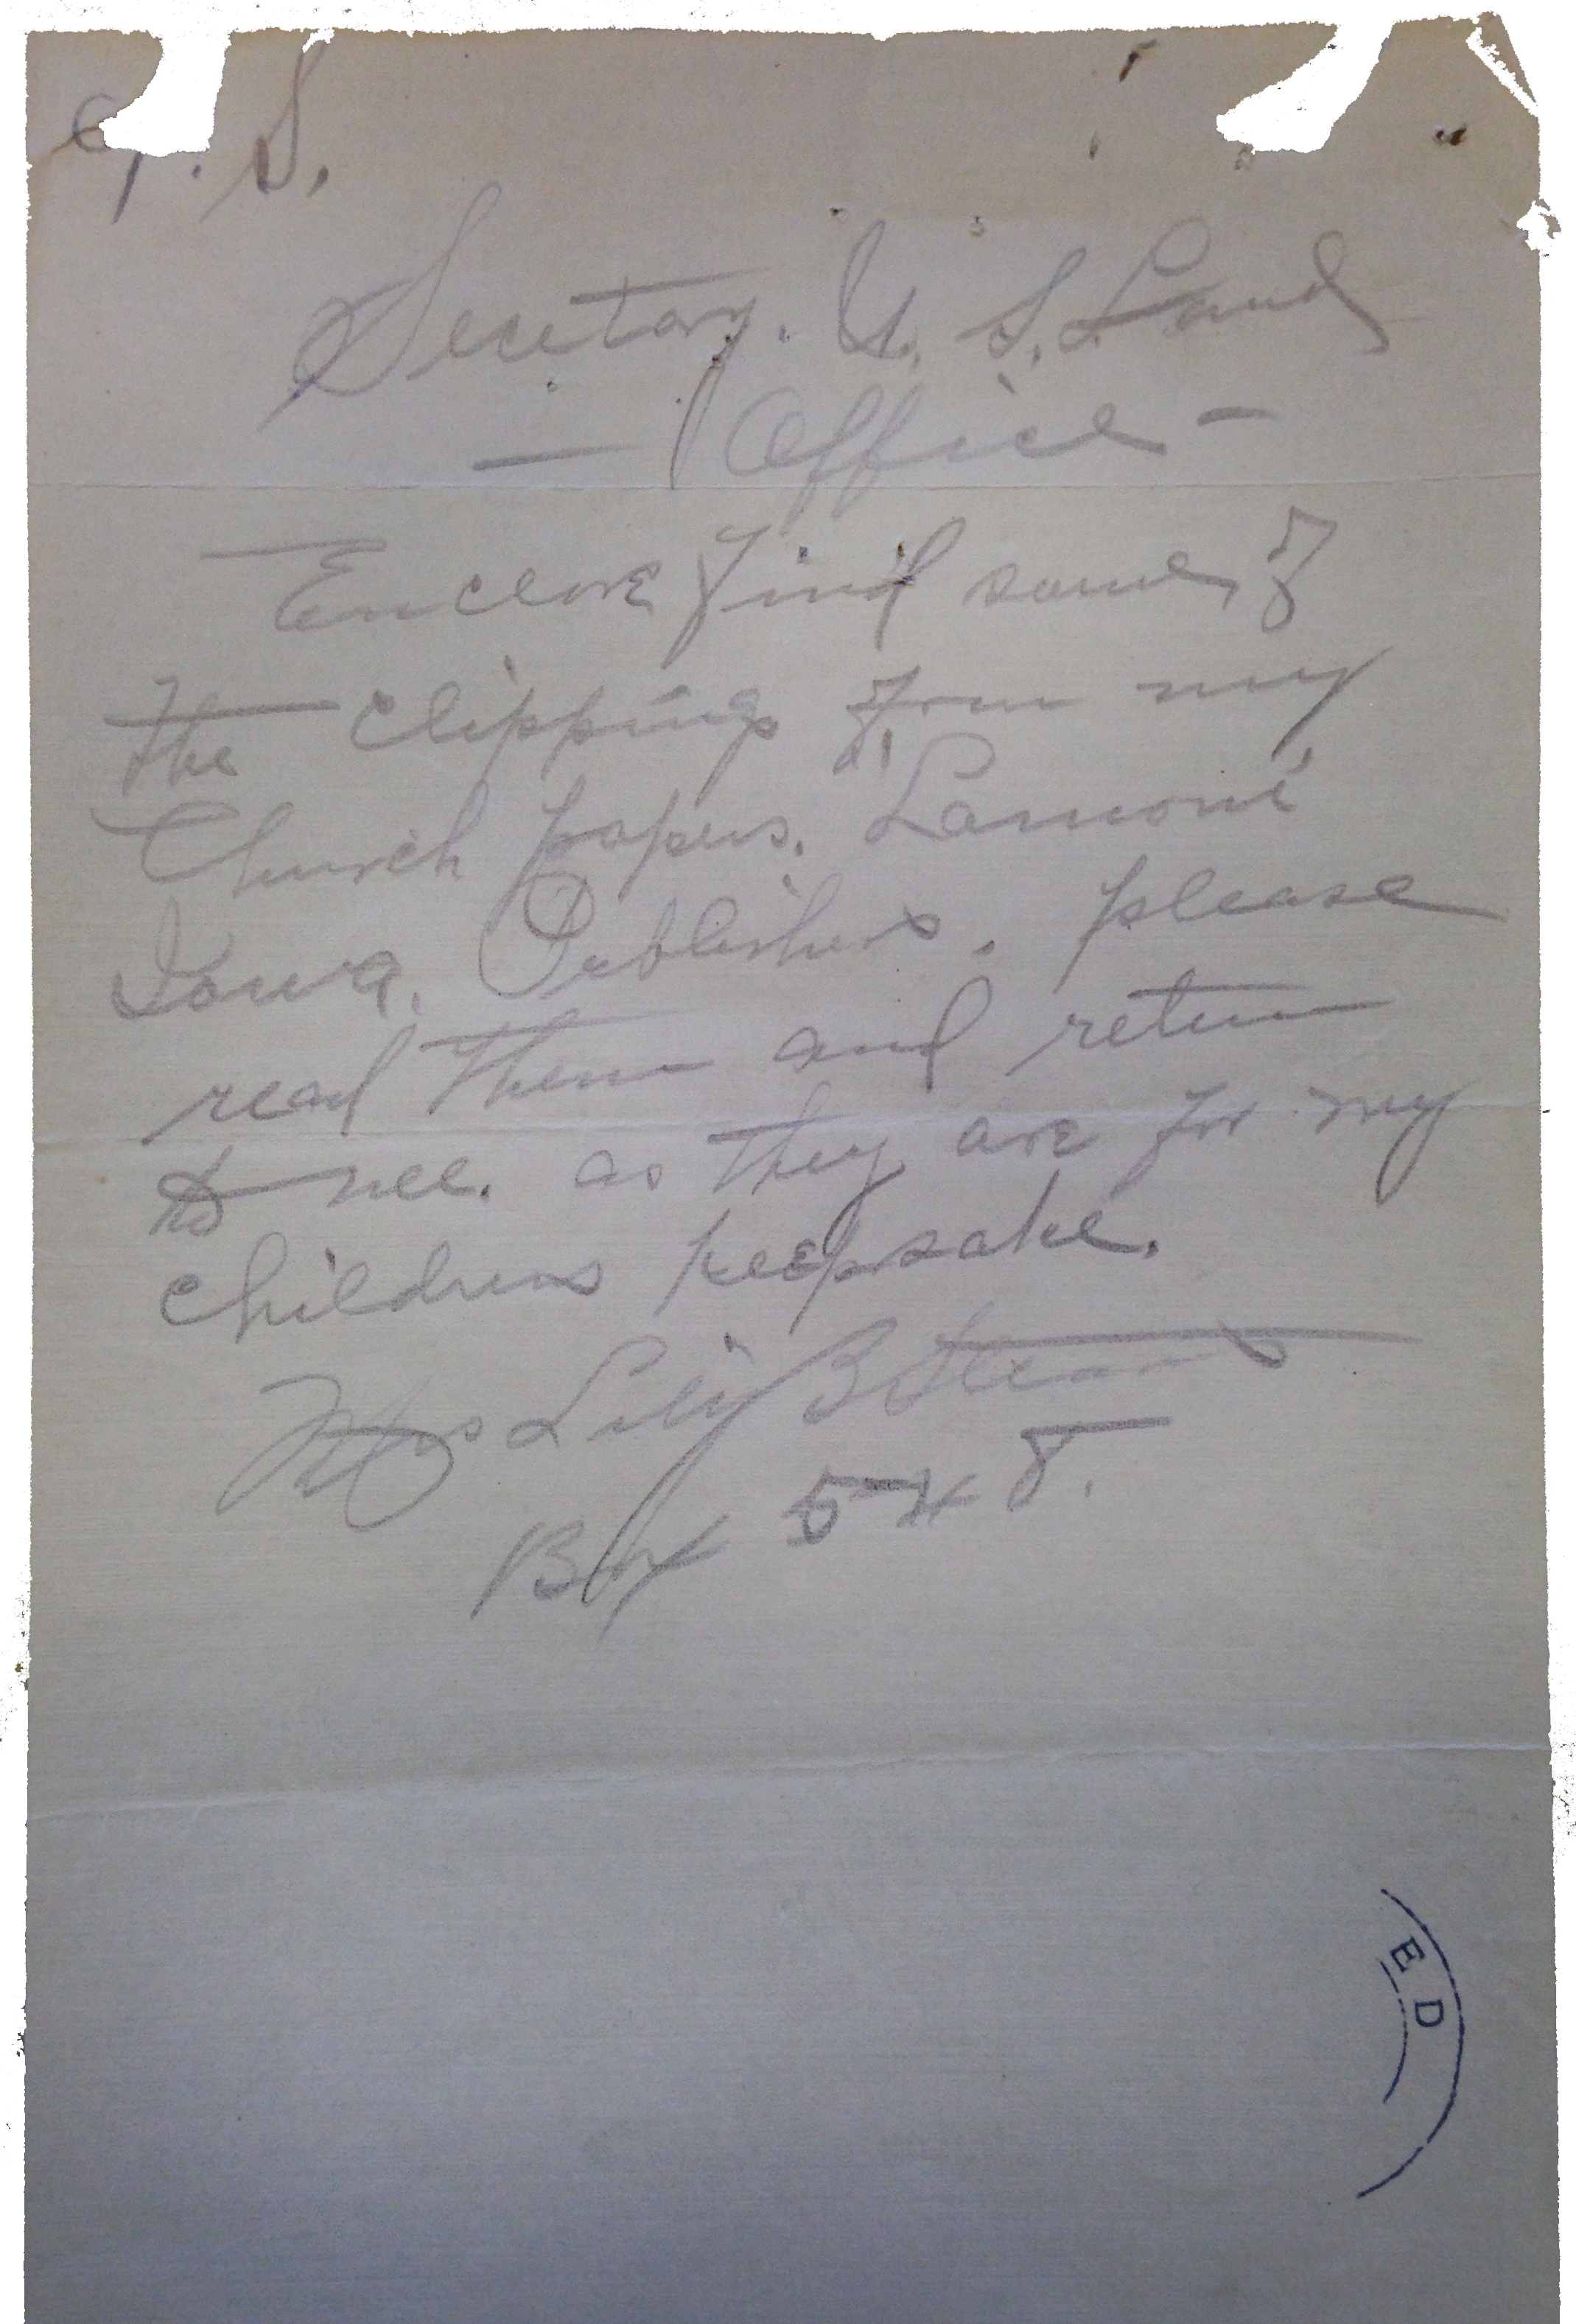 S.
Secetary. U. S. Land
— Office —
Enclose find some of
the clippings from my
Church papers. Lamoni
Iowa. Publishers. please
read them and return
to me. as they are for my
childrens keepsake.
Mrs Lily B
Box 548.
E D